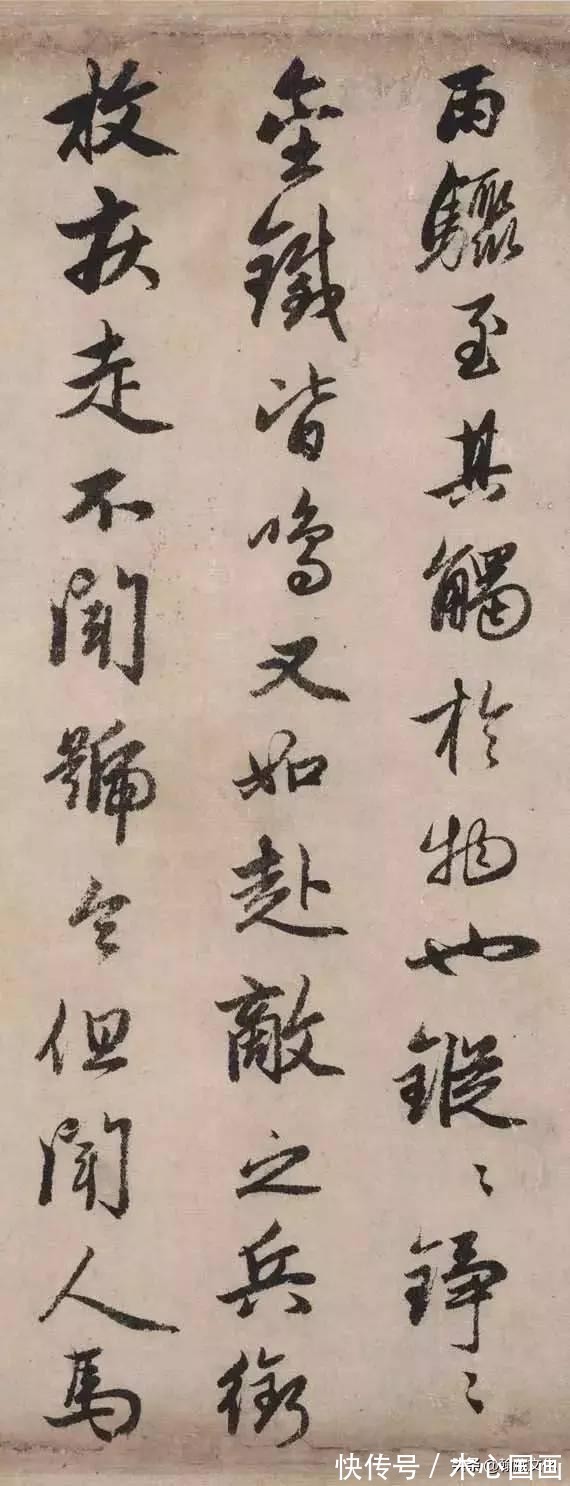 雨驟至其觸於物也鏦〻錚〻
金鐵皆鳴又如赴敵之兵銜
枚疾走不聞號令但聞人馬
快传号／木心国画